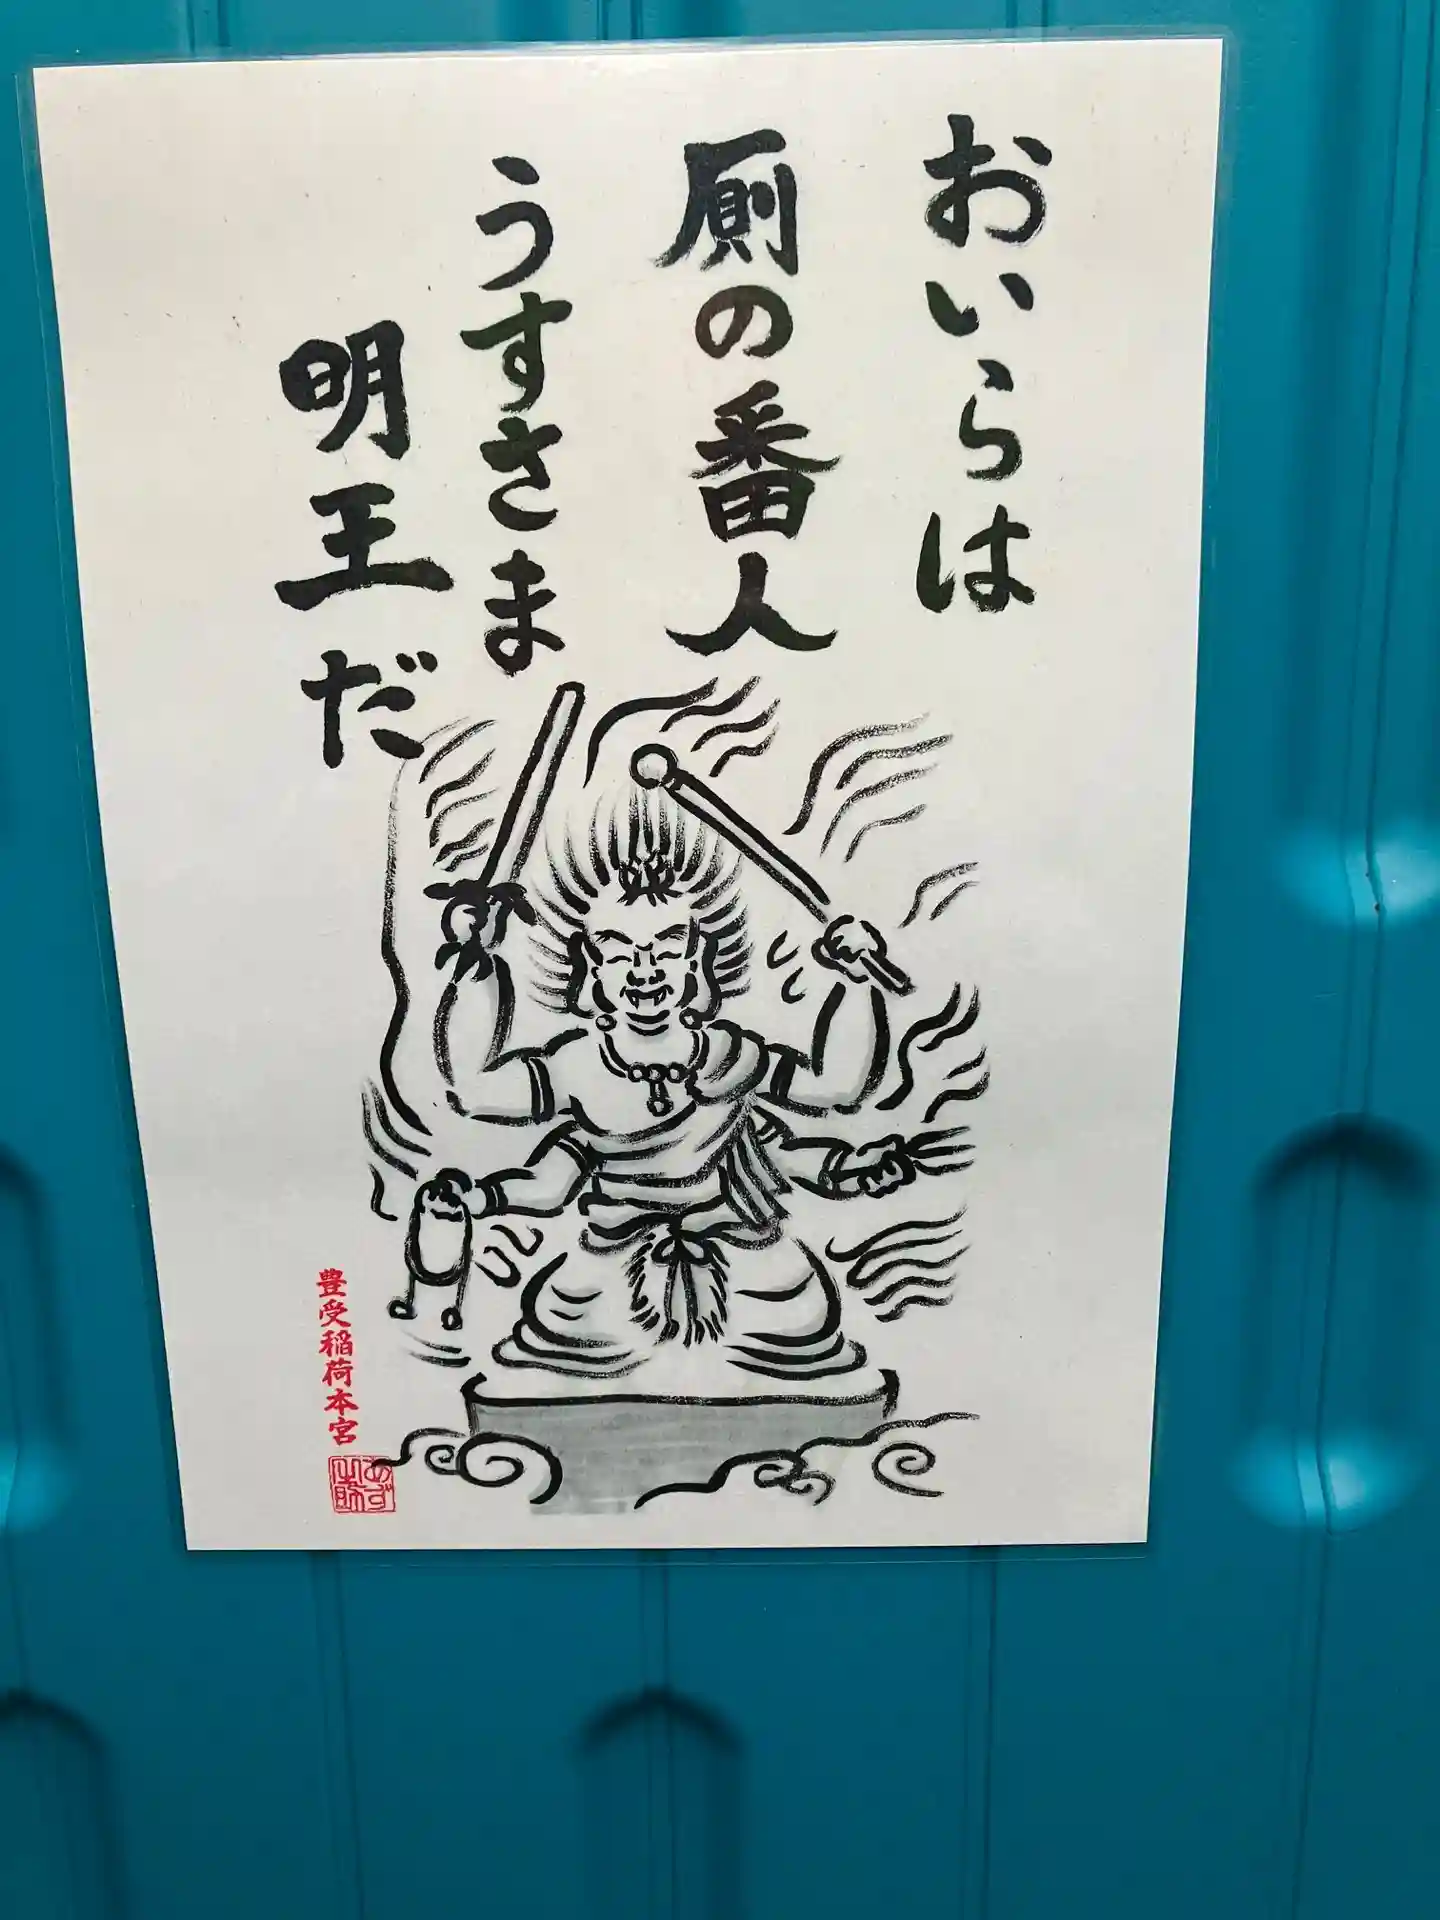 おいらは
厠の番人
うすさま
明王だ
豊受稲荷本宮